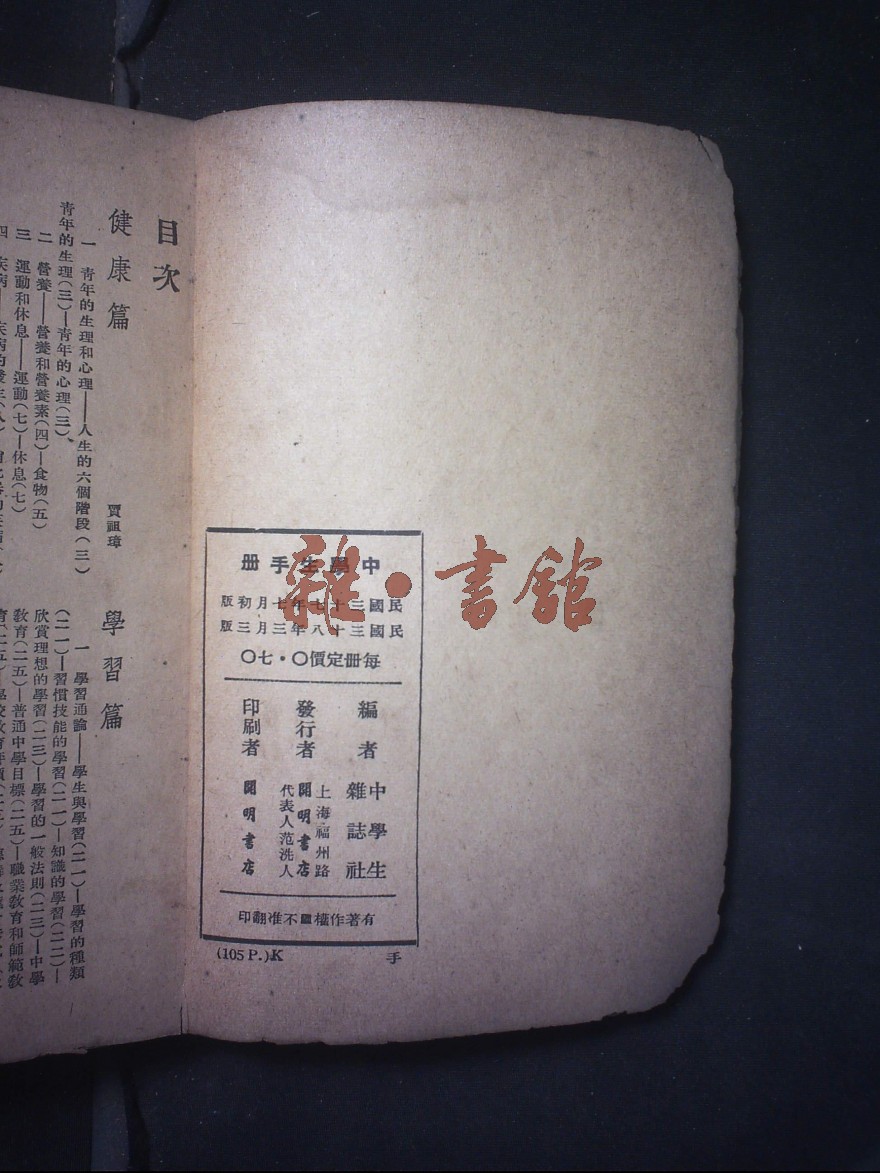 中學生手册
民國三十七年七月初版
民國三十八年三月三版
每册定價〇·七〇
編者
中學生
雜誌社
發行者
上海福州路
開明書店
代表人范洗人
印刷者
開明書店
有著作權不准翻印
(105 P.)K
手
雜·書館
目次
健康篇
賈祖璋
一 青年的生理和心理——人生的六個階段(三)
青年的生理(三)—青年的心理(三)
二 營養——營養和營養素(四)—食物(五)
三 運動和休息——運動(七)—休息(七)
學習篇
一 學習通論——學生與學習(二一)—學習的種類
(二一)—習慣技能的學習(二一)—知識的學習(二二)—
欣賞理想的學習(二三)—學習的一般法則(二三)—中學
教育(二五)—普通中學目標(二五)—職業教育和師範教